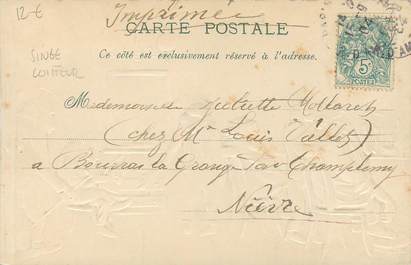 12-€
Imprimé
CARTE POSTALE
Ce côté est exclusivement réservé à l'adresse.
SINGE
COIFFEUR
5c
POSTES
Mademoiselle Juliette
(chez Mr Louis Vallet)
a la Grange par Champlemy
Nièvre